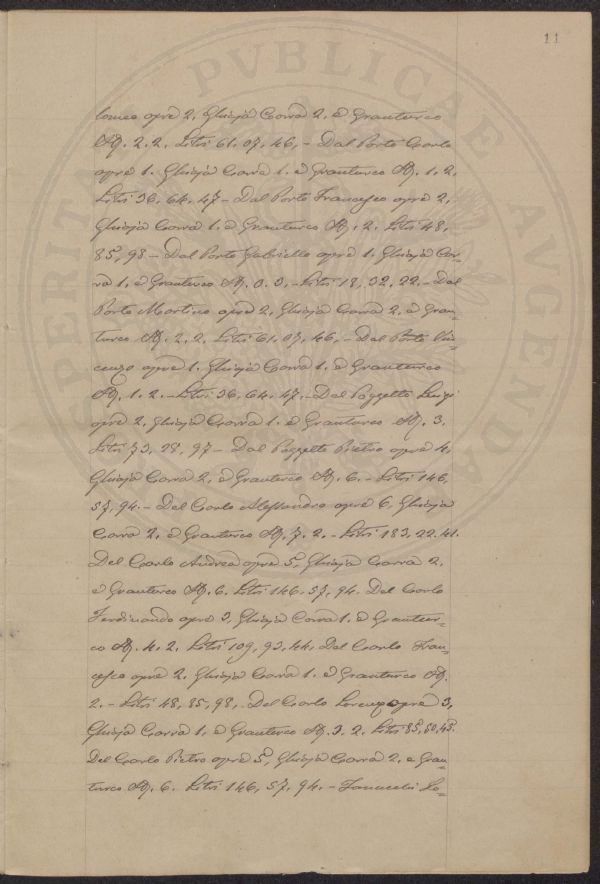 11
SPERITATI PVBLICAE AVGENDA
lomeo opre 2. Ghiaja Carra 2. e Granturco
St. 2. 2. Litri 61. 07. 46. - Dal Porto Carlo
opre 1. Ghiaja Carra 1. e Granturco St. 1. 2.
Litri 36. 64. 47 - Dal Porto Francesco opre 2.
Ghiaja Carra 1. e Granturco St. 2. Litri 48.
85, 98 - Dal Porto Gabriello opre 1. Ghiaja Car-
ra 1. e Granturco St. 0. 3. - Litri 18, 32, 22. - Dal
Porto Martino opre 2, Ghiaja Carra 2. e Gran-
turco St. 2. 2. Litri 61. 07. 46. - Dal Porto Vin-
cenzo opre 1. Ghiaja Carra 1. e Granturco
St. 1. 2. - Litri 36. 64. 47. - Dal Poggetto Luigi
opre 2, Ghiaja Carra 1. e Granturco St. 3.
Litri 73, 28, 97 - Dal Poggetto Pietro opre 4.
Ghiaja Carra 2, e Granturco St. 6. - Litri 146,
57, 94. - Del Carlo Alessandro opre 6, Ghiaja
Carra 2. e Granturco St. 7. 2. - Litri 183, 22. 41.
Del Carlo Andrea opre 5, Ghiaja Carra 2.
e Granturco St. 6. Litri 146. 57, 94. Del Carlo
Ferdinando opre 3, Ghiaja Carra 1. e Grantur-
co St. 4. 2. Litri 109, 93, 44. Del Carlo Fran-
cesco opre 2, Ghiaja Carra 1. e Granturco St.
2. - Litri 48, 85, 98, - Del Carlo Lorenzo opre 3,
Ghiaja Carra 1, e Granturco St. 3. 2. Litri 85, 50, 45.
Del Carlo Pietro opre 5, Ghiaja Carra 2. e Gran-
turco St. 6. Litri 146, 57, 94. - Fanucchi Lo-